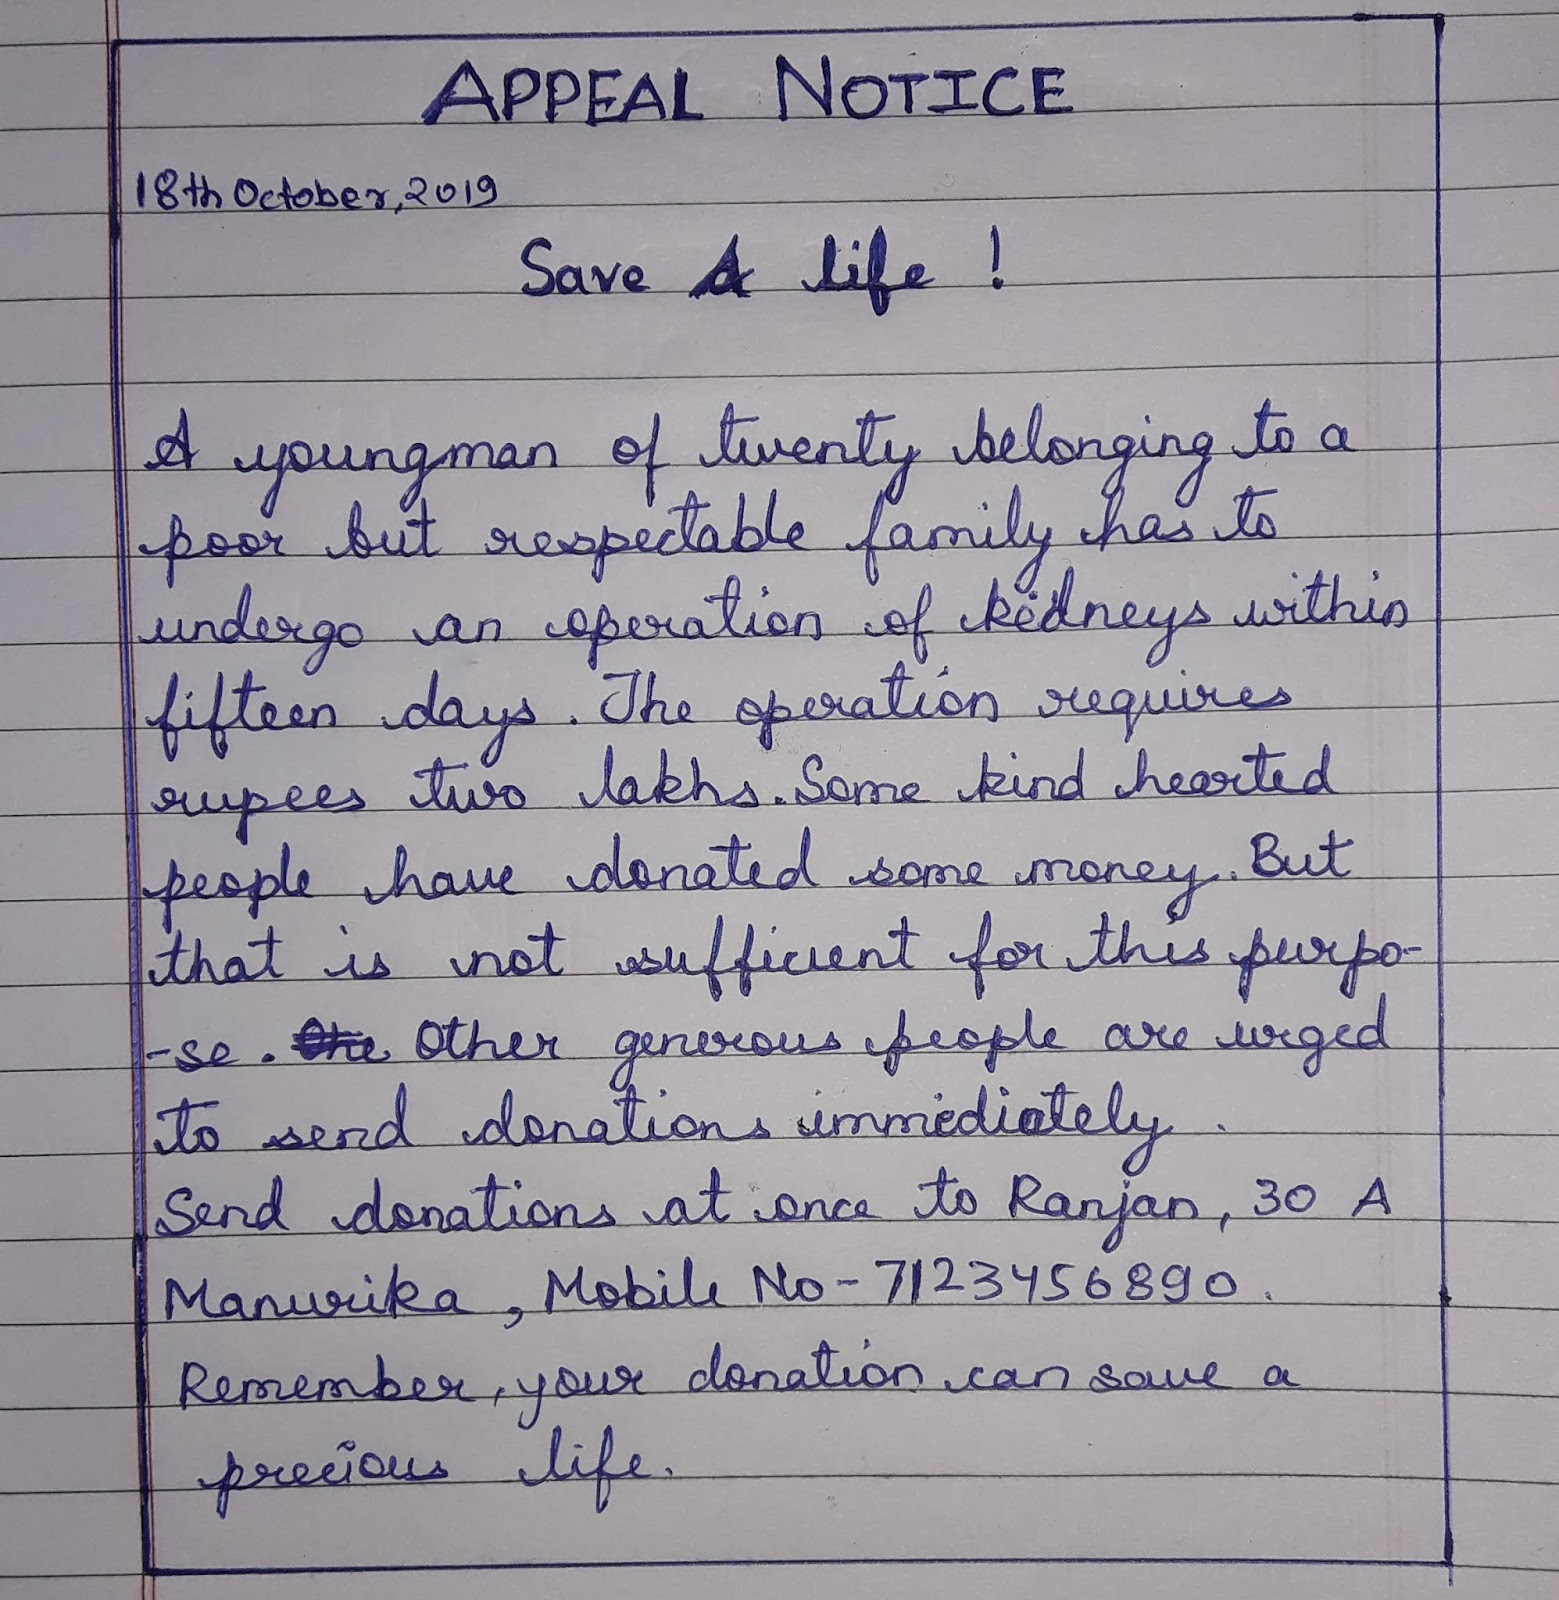 APPEAL NOTICE
18th October, 2019
Save A life !
A youngman of twenty belonging to a
poor but respectable family has to
undergo an operation of kidneys within
fifteen days. The operation requires
rupees two lakhs. Some kind hearted
people have donated some money. But
that is not sufficient for this purpo-
-se. Other generous people are urged
to send donations immediately.
Send donations at once to Ranjan, 30 A
Manurika, Mobile No - 7123456890.
Remember, your donation can save a
precious life.